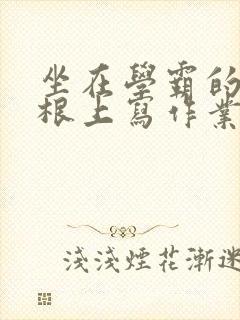 坐在學霸的
根上寫作業
淺淺煙花漸迷